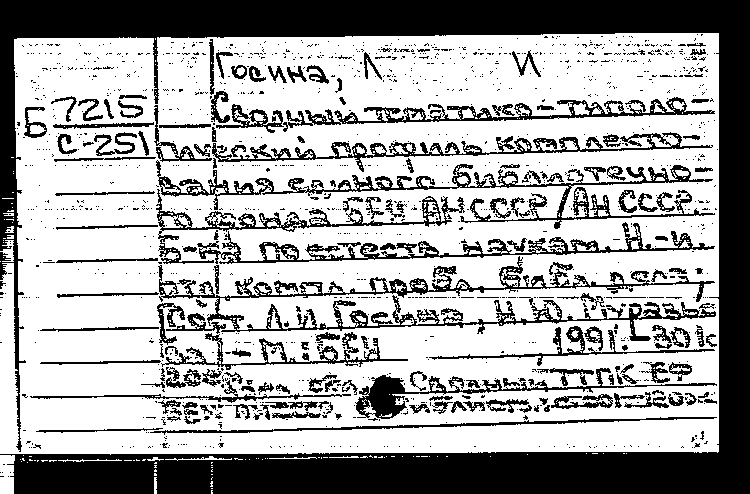 Госина, Л И
Б 7215 Сводный тематико-типоло-
С-251 гический профиль комплекто-
вания единого библиотечно-
го фонда БЕН АН СССР / АН СССР.
Б-ка по естеств. наукам. Н.-и.
отд. компл. пробл. библ. дела;
[Сост. Л.И. Госина, Н.Ю. Муравье
ва]. - М.: БЕН , 1991. - 301с
200 Сводный ТТПК ЕФ
БЕН АН СССР.